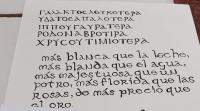 ΓΑΛΑΚΤΟϹ ΛΕΥΚΟΤΕΡΑ
ΥΔΑΤΟϹ ΑΠΑΛΟΤΕΡΑ
ΙΠΠΟΥ ΓΑΥΡΟΤΕΡΑ
ΡΟΔΟΝ ΑΒΡΟΤΕΡΑ
ΧΡΥϹΟΥ ΤΙΜΙΟΤΕΡΑ
más blanca que la leche,
más blanda que el agua,
más majestuosa que un
potro, más florida que las
rosas, de más precio que
el oro.